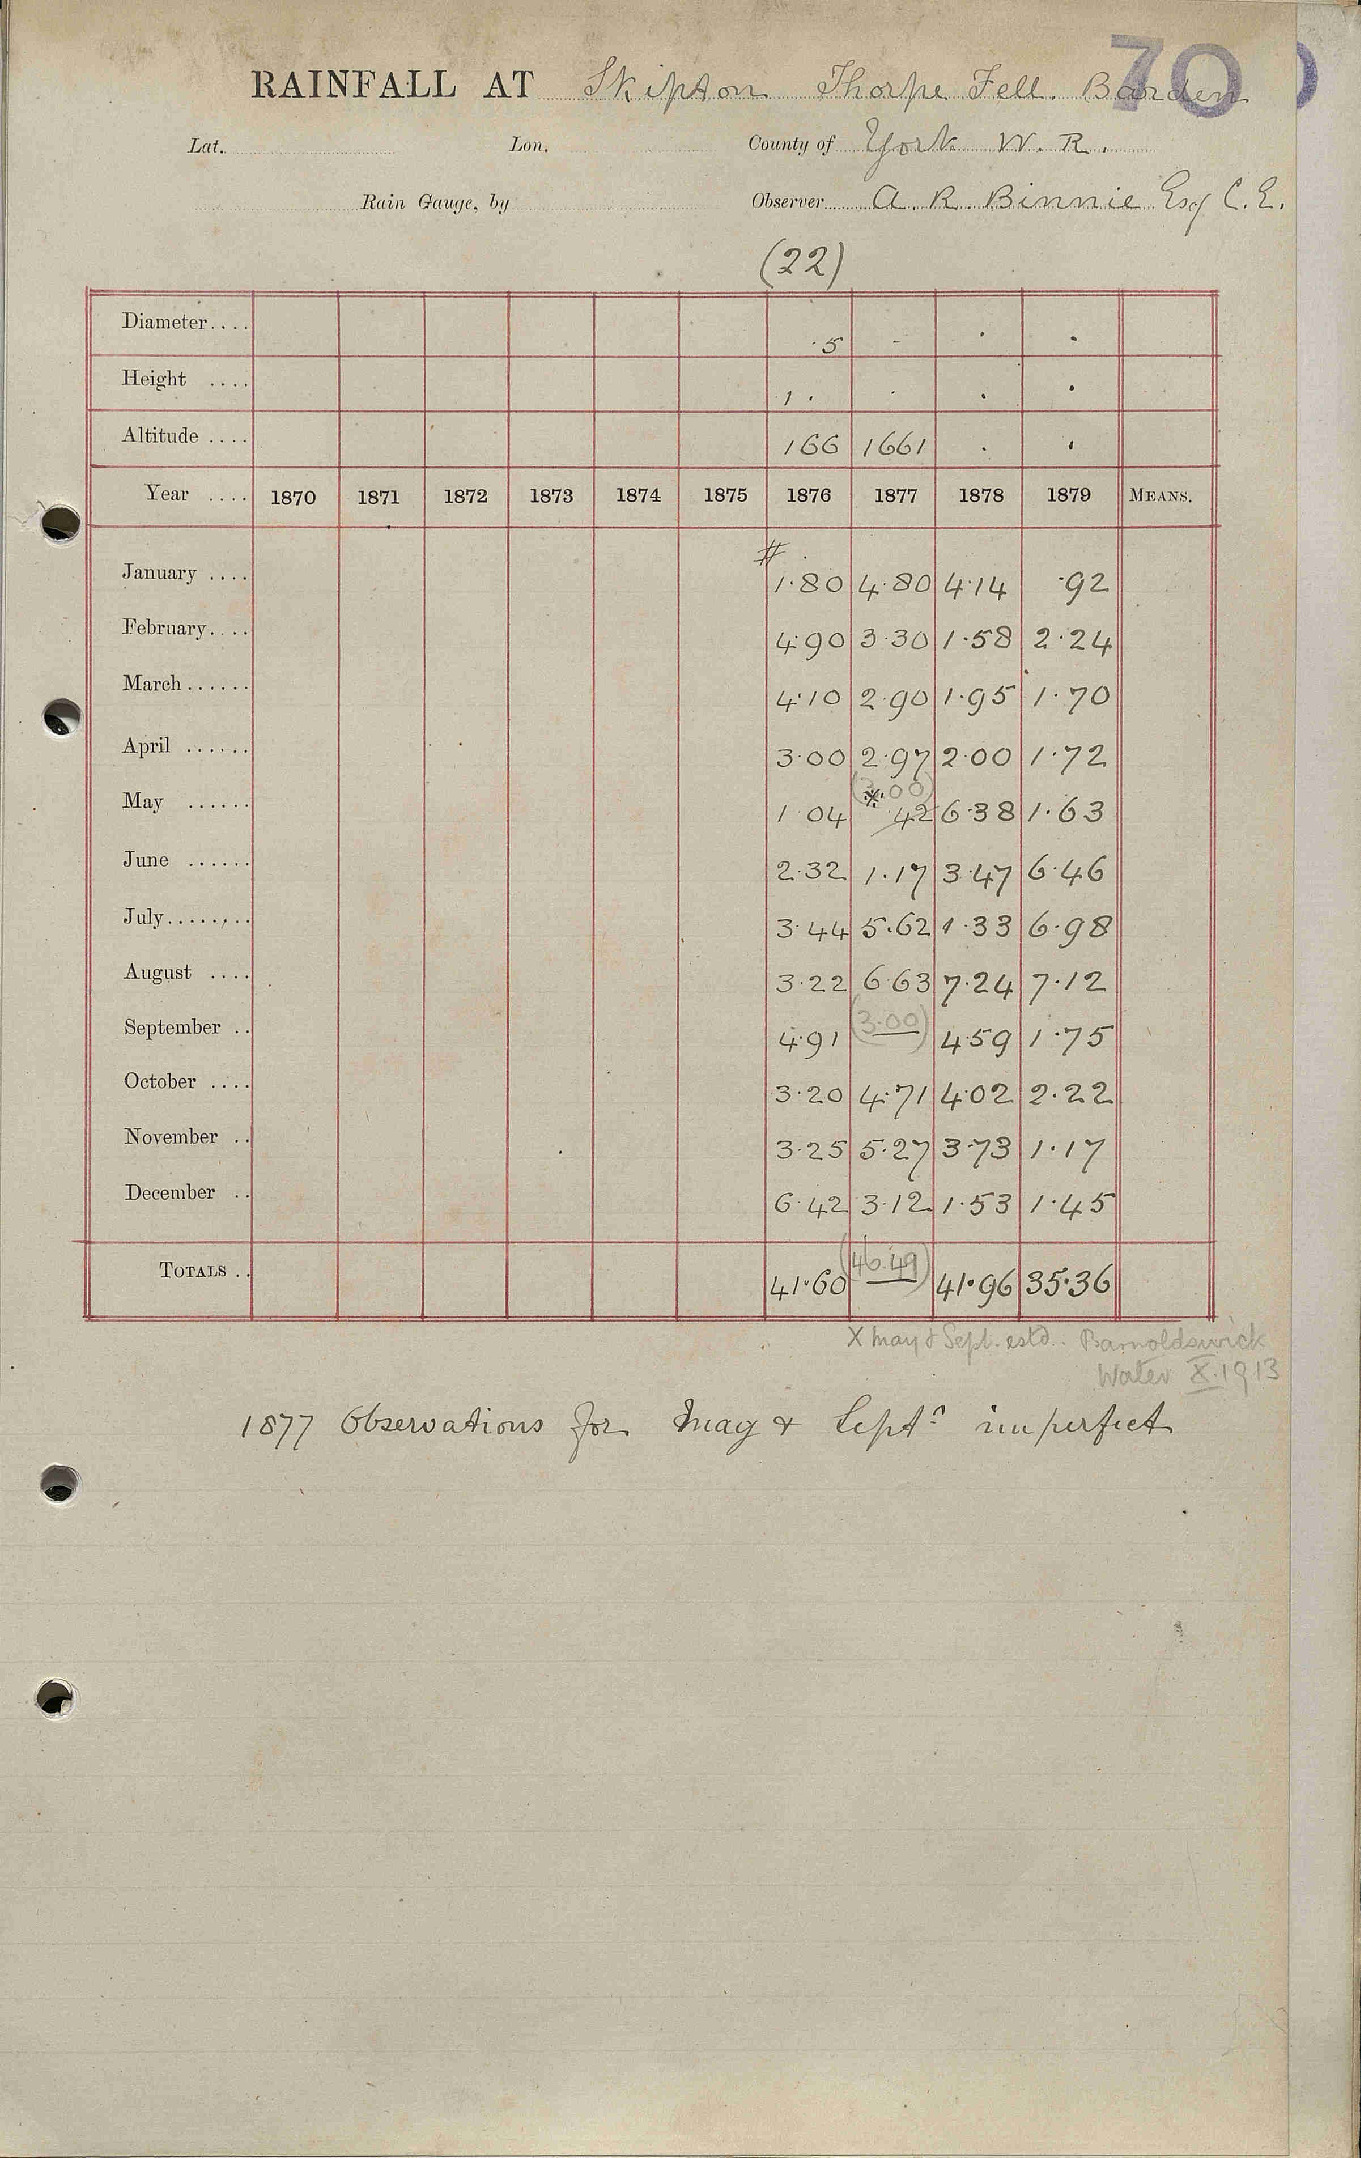 70
RAINFALL AT Skipton Thorpe Fell. Barden
Lat. Lon. County of York W. R.
Rain Gauge, by Observer A. R. Binnie Esq C. E.
(22)
Diameter.... ·5 · · ·
Height .... 1. · · ·
Altitude .... 166 1661 · ·
Year .... 1870 1871 1872 1873 1874 1875 1876 1877 1878 1879 MEANS.
#
January .... 1·80 4·80 4·14 ·92
February.... 4·90 3·30 1·58 2·24
March...... 4·10 2·90 1·95 1·70
April ...... 3·00 2·97 2·00 1·72
May ...... 1 04 * 42 6·38 1·63
June ...... 2·32 1·17 3·47 6·46
July........ 3·44 5·62 1·33 6·98
August .... 3·22 6·63 7·24 7·12
September .. 4·91 (3·00) 4·59 1·75
October .... 3·20 4·71 4·02 2·22
November .. 3·25 5·27 3·73 1·17
December .. 6·42 3·12 1·53 1·45
TOTALS .. 41·60 (46.49) 41·96 35·36
X May & Sept. estd. Barnoldswick
Water X.1913
1877 Observations for May & Septr imperfect